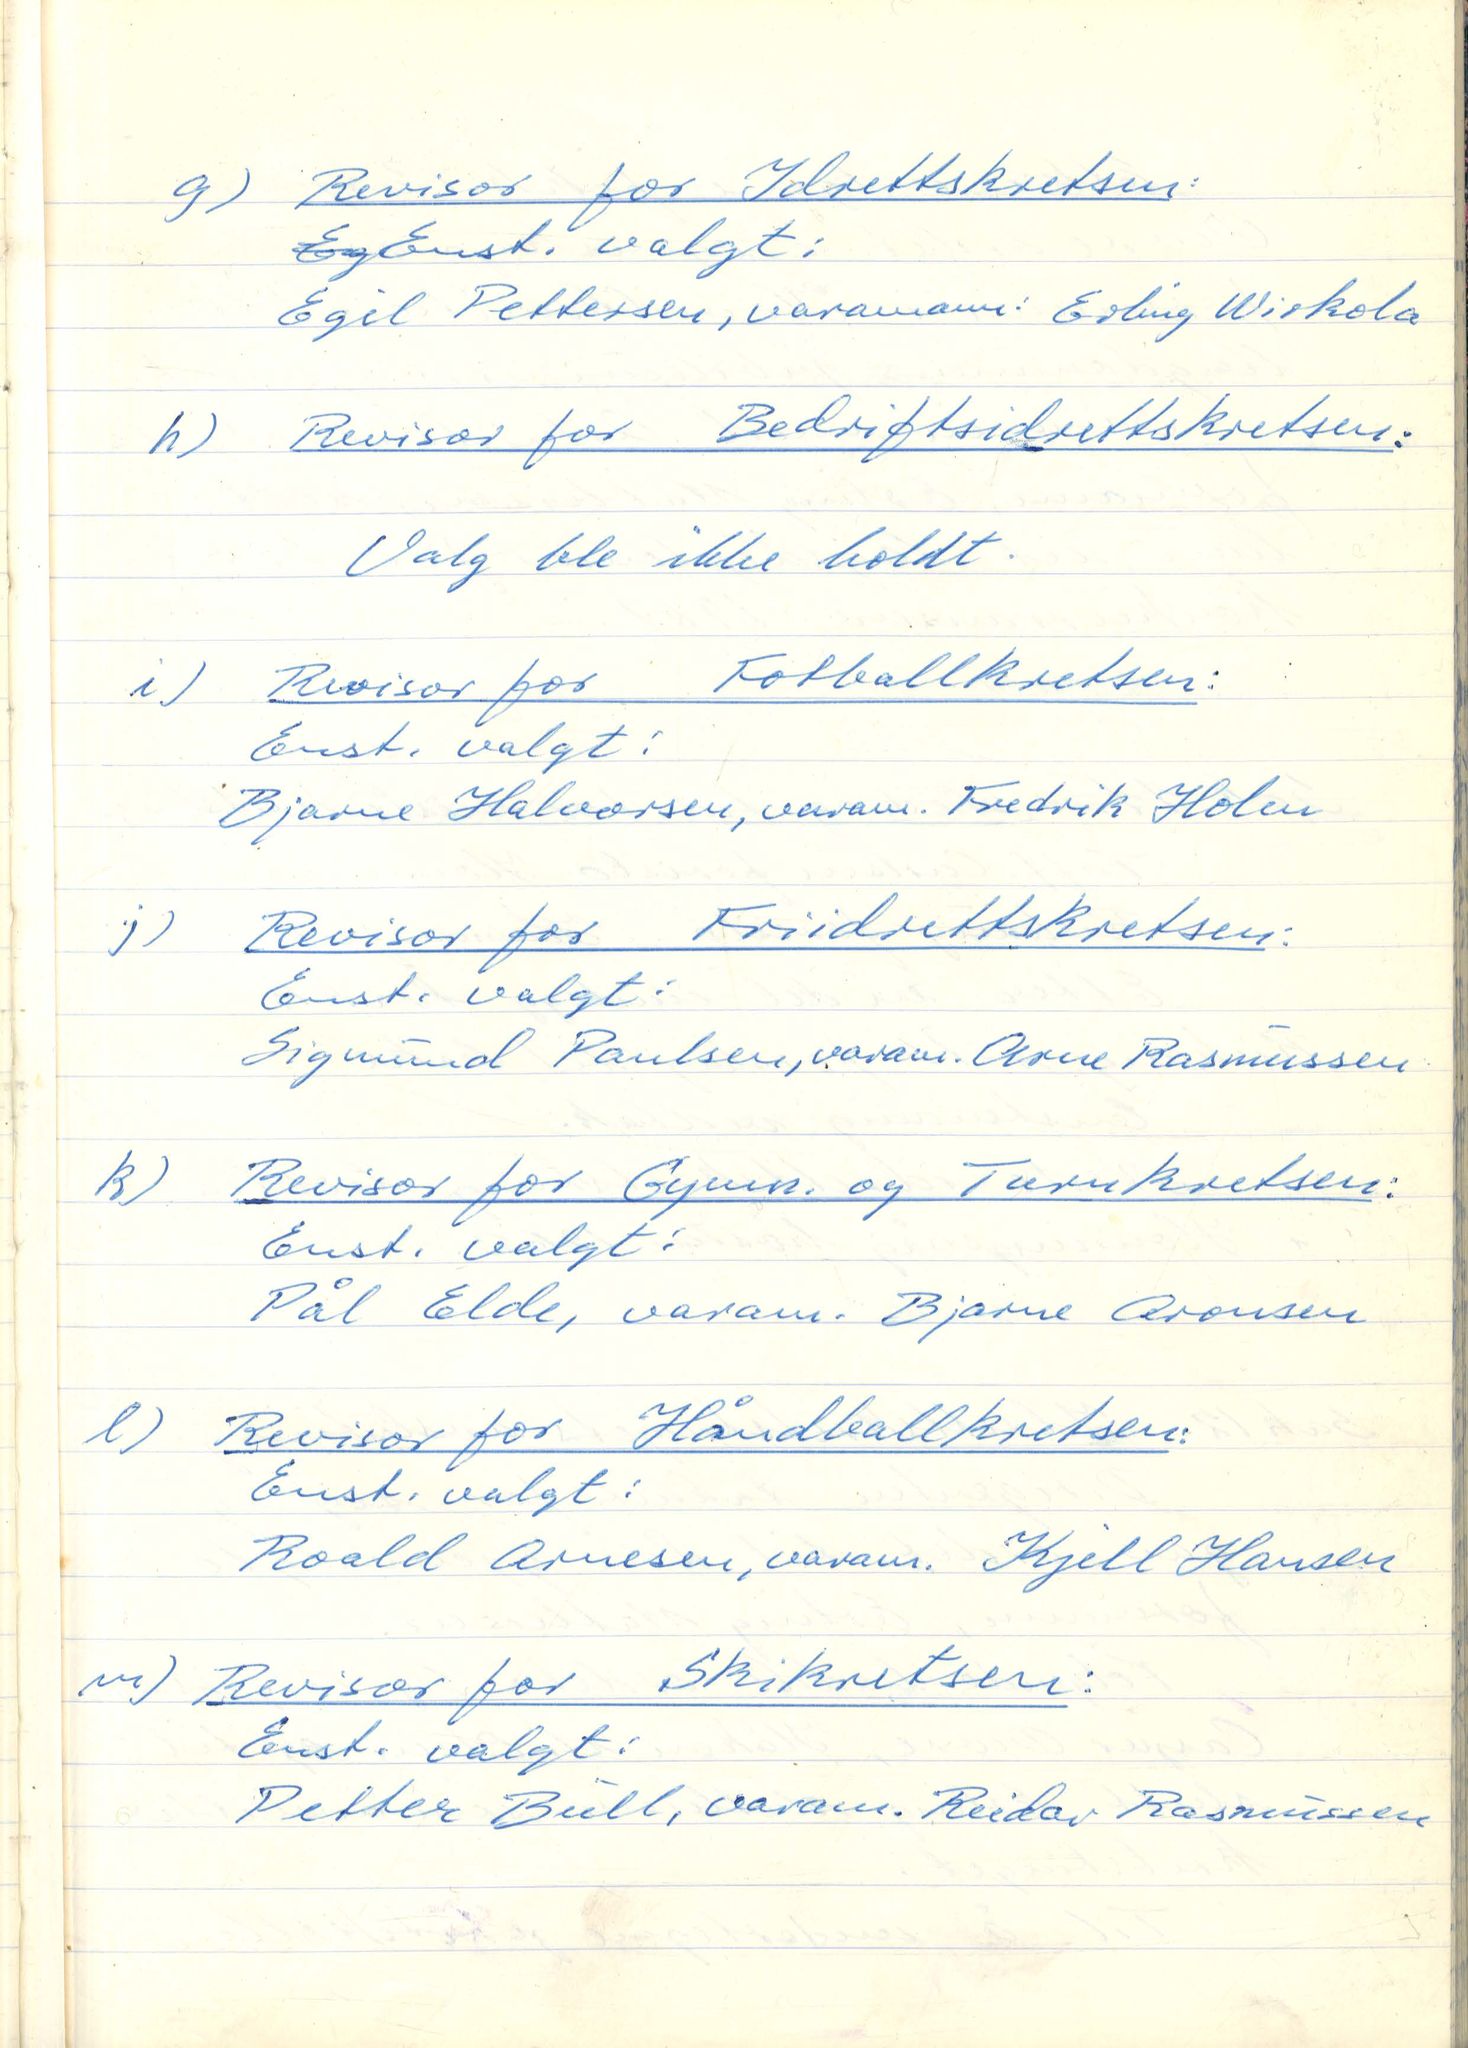 g) Revisor for Idrettskretsen:
Eg Enst. valgt:
Egil Pettersen, varamann: Erling Wirkola
h) Revisor for Bedriftsidrettskretsen:
Valg ble ikke holdt.
i) Revisor for Fotballkretsen:
Enst. valgt:
Bjarne Halvorsen, varam. Fredrik Holm
j) Revisor for Friidrettskretsen:
Enst. valgt:
Sigmund Paulsen, varam. Arne Rasmussen
k) Revisor for Gymn. og Turnkretsen:
Enst. valgt:
Pål Elde, varam. Bjarne Aronsen
l) Revisor for Håndballkretsen:
Enst. valgt:
Roald Arnesen, varam. Kjell Hansen
m) Revisor for Skikretsen:
Enst. valgt:
Petter Bull, varam. Reidar Rasmussen